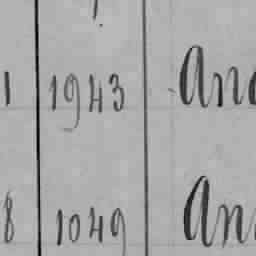 1 1943 And
8 1049 An